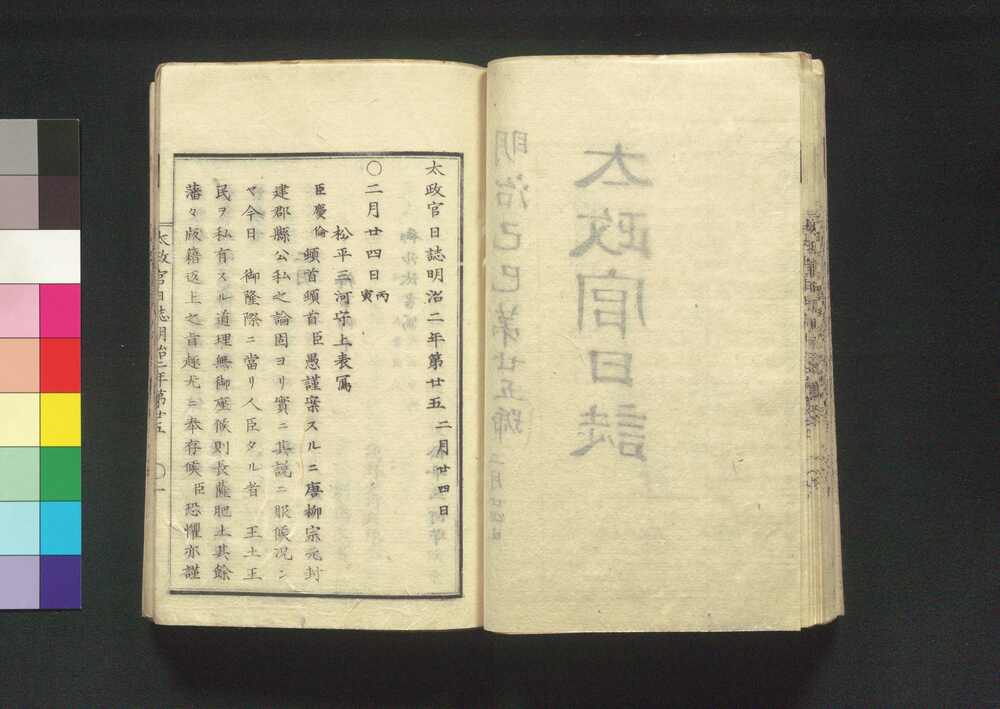 太政官日誌
明治己巳第廿五號 二月廿四日
太政官日誌明治二年第廿五 二月廿四日
〇二月廿四日丙寅
松平三河守上表寫
臣慶倫頓首頓首臣愚謹案スルニ唐柳宗元封
建郡縣公私之論固ヨリ實ニ其説ニ服候况ン
ヤ今日 御隆際ニ當リ人臣タル者 王土王
民ヲ私有スル道理無御座候則長薩肥土其餘
藩々版籍返上之旨趣尤ニ奉存候臣恐懼亦謹
太政官日誌明治二年第廿五 〇一